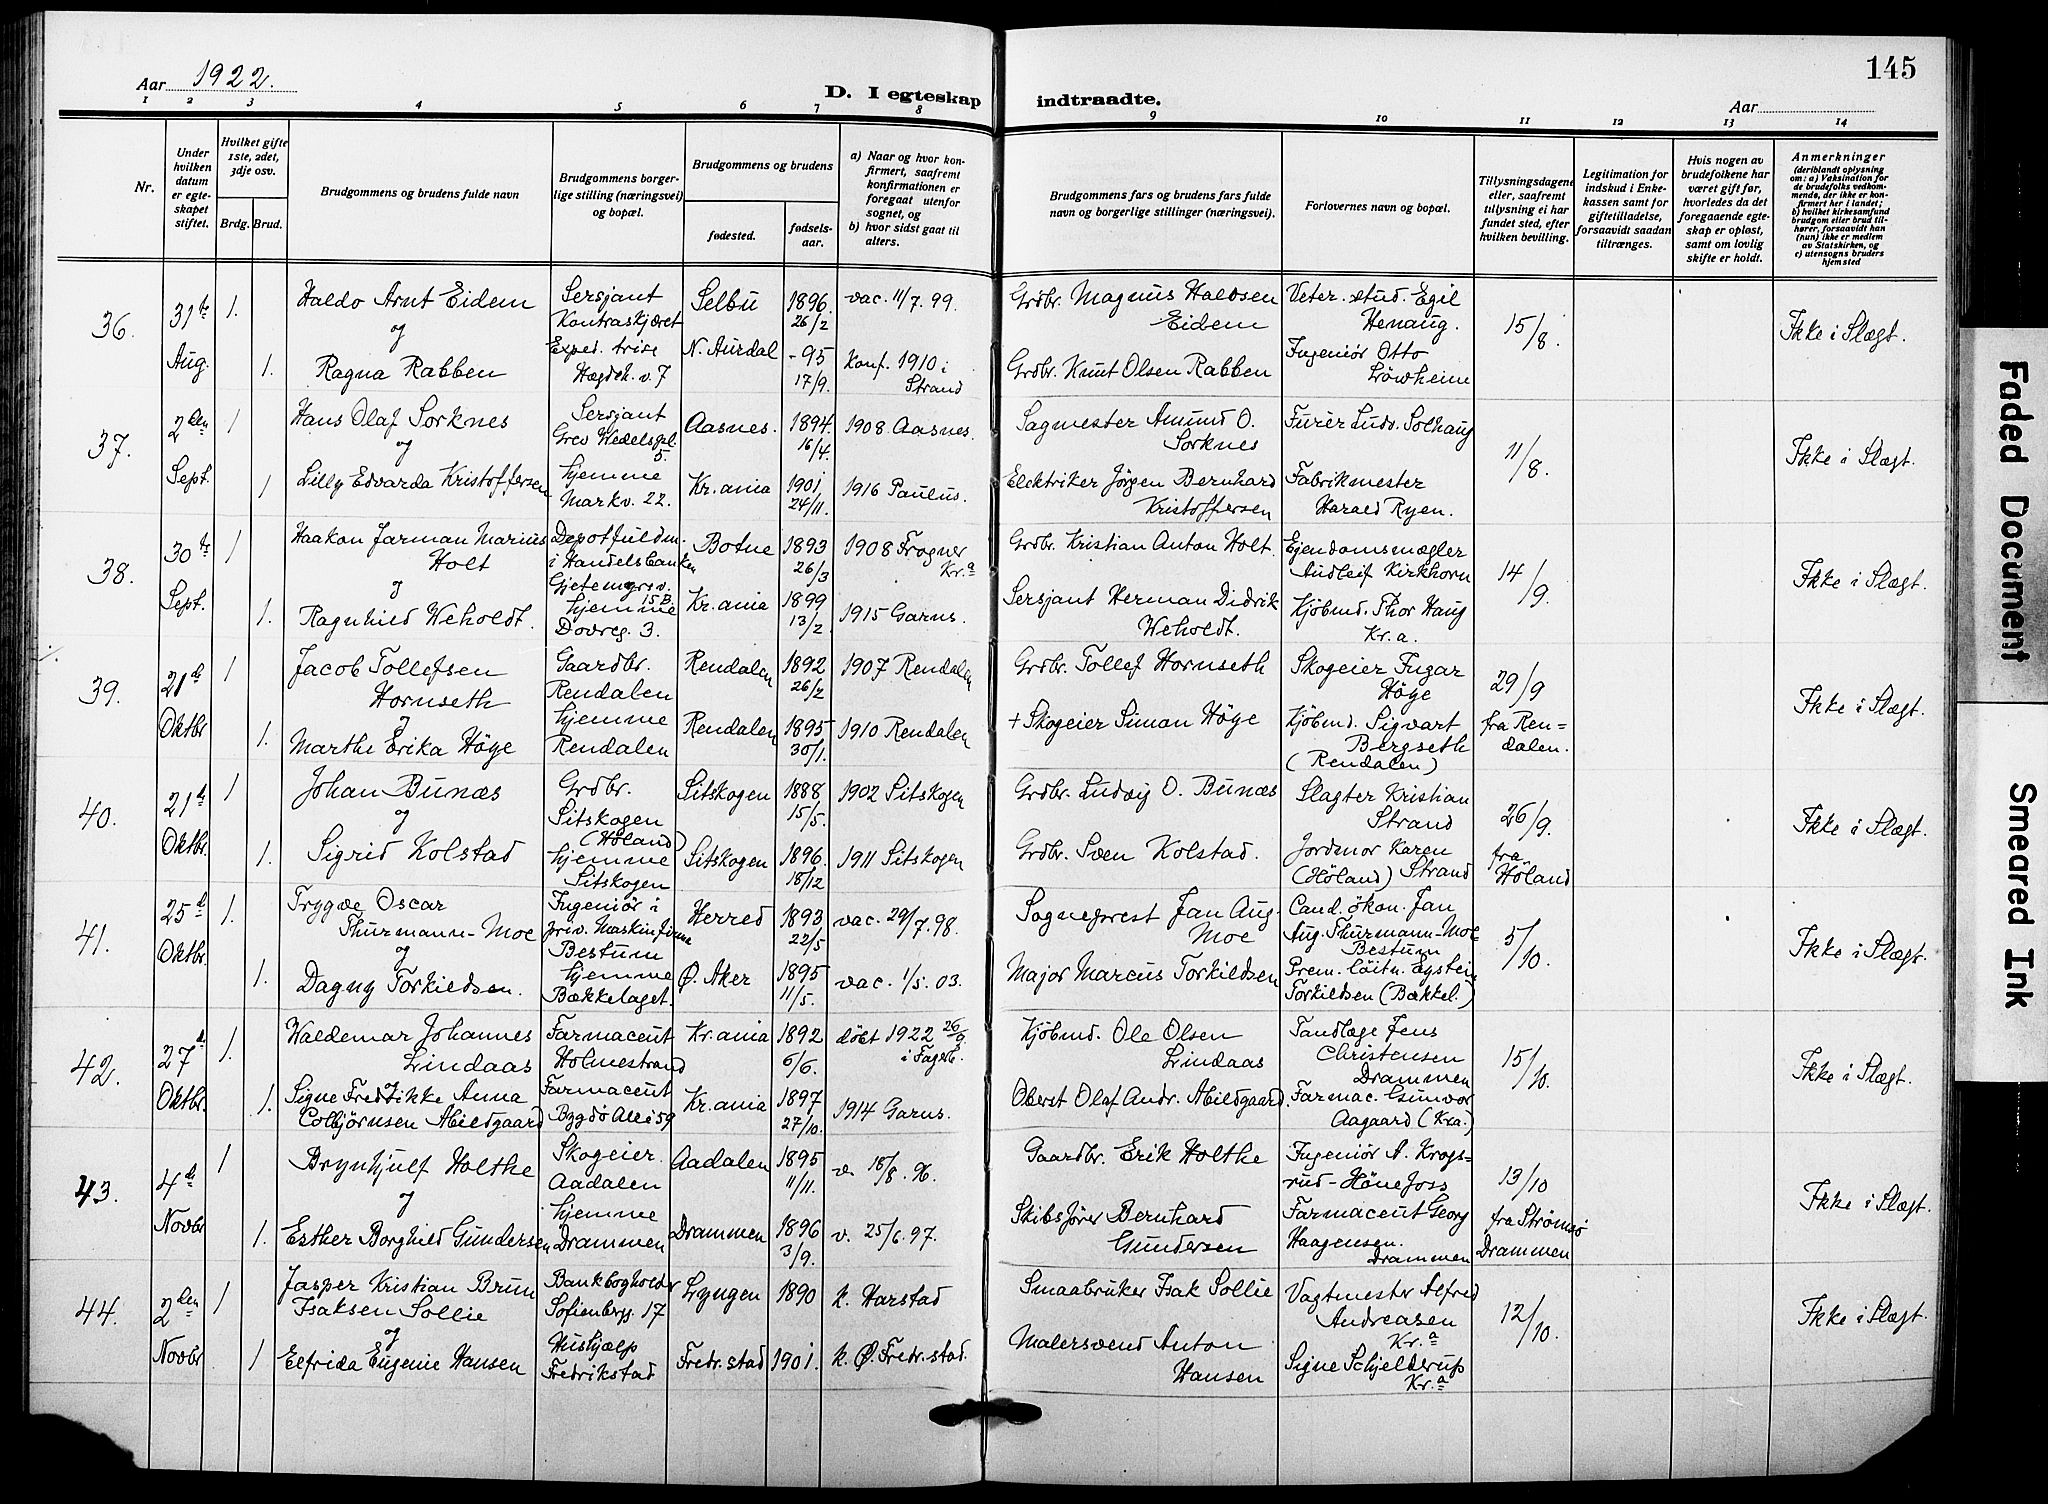 Aar 1922.
D. I egteskap indtraadte.
145
Aar
1 2 3 4 5 6 7 8 9 10 11 12 13 14
Nr.
Under
hvilken
datum
er egte-
skapet
stiftet.
Hvilket gifte
1ste, 2det,
3dje osv.
Brdg. Brud.
Brudgommens og brudens fulde navn
Brudgommens borger-
lige stilling (næringsvei)
og bopæl.
Brudgommens og brudens
fødested.
fødsels-
aar.
a) Naar og hvor kon-
firmert, saafremt
konfirmationen er
foregaat utenfor
sognet, og
b) hvor sidst gaat til
alters.
Brudgommens fars og brudens fars fulde
navn og borgerlige stillinger (næringsvei).
Forlovernes navn og bopæl.
Tillysningsdagene
eller, saafremt
tillysning ei har
fundet sted, efter
hvilken bevilling.
Legitimation for
indskud i Enke-
kassen samt for
giftetilladelse,
forsaavidt saadan
tiltrænges.
Hvis nogen av
brudefolkene har
været gift før,
hvorledes da det
foregaaende egte-
skap er opløst,
samt om lovlig
skifte er holdt.
Anmerkninger
(deriblandt oplysning
om: a) Vaksination for
de brudefolks vedkom-
mende, der ikke er kon-
firmert her i landet;
b) hvilket kirkesamfund
brudgom eller brud til-
hører, forsaavidt han
(hun) ikke er medlem
av Statskirken, og
c) utensogns bruders
hjemsted
36.
31te
Aug.
1.
1.
Haldo Arnt Eidem
og
Ragna Rabben
Sersjant
Kontraskjæret
Exped. trise
Hægdeh. v. 7
Selbu
N. Aurdal
1896.
26/2
-95
17/9.
vac. 11/7. 99.
Konf. 1910 i
Strand
Grdbr. Magnus Haldsen
Eidem
Grdbr. Knut Olsen Rabben
Veter. stud. Egil
Henaug.
Ingeniör Otto
Löwheim
15/8.
Ikke i Slægt.
37.
2den
Sept.
1
1
Hans Olaf Sorknes
og
Lilly Edvarda Kristoffersen
Sersjant
Grev Wedelspl.
5.
hjemme
Markv. 22.
Aasnes.
Kr.ania
1894.
16/4.
1901
24/11.
1908 Aasnes.
1916 Paulus.
Sagmester Amund O.
Sorknes
Elektriker Jörgen Bernhard
Kristoffersen
Furer Ludv. Solhaug
Fabrikmester
Harald Ryen.
11/8.
Ikke i Slægt.
38.
30te
Sept.
1
1.
Haakon Jarman Marius
Holt
og
Ragnhild Weholdt.
Depotfuldm.
i Handelsbanken
Gjetemyrsv.
15 B.
hjemme
Dovreg. 3.
Botne
Kr.ania
1893
26/3
1899
13/2
1908 Frogner
Kr.a
1915 Garns.
Grdbr. Kristian Anton Holt.
Sersjant Herman Didrik
Weholdt.
Ejendomsmægler
Audleif Kirkhorn
Kjöbmd. Thor Haug
Kr. a.
14/9.
Ikke i Slægt.
39.
21de
Oktbr
1
1.
Jacob Tollefsen
Hornseth
og
Marthe Erika Höye
Gaardbr.
Rendalen
hjemme
Rendalen
Rendalen
Rendalen
1892
26/2
1895
30/1.
1907 Rendalen
1910 Rendalen
Grdbr. Tollef Hornseth
+ Skogeier Simon Höye
Skogeier Ingar
Höye
Kjöbmd. Sigvart
Bergseth
(Rendalen)
29/9
fra Ren=
dalen.
Ikke i Slægt.
40.
21de
Oktbr.
1
1.
Johan Bunæs
og
Sigrid Kolstad
Grdbr.
Sitskogen
(Höland)
hjemme
Sitskogen
Sitskogen
Sitskogen
1888
15/5.
1896.
18/12
1902 Sitskogen
1911 Sitskogen
Grdbr. Ludvig O. Bunæs
Grdbr. Sven Kolstad.
Slagter Kristian
Strand
Jordmor Karen
(Höland) Strand
26/9.
fra
Höland
Ikke i Slægt.
41.
25de
Oktbr.
1.
1.
Trygve Oscar
Thurmann-Moe
og
Dagny Torkildsen.
Ingeniör i
priv. Maskinfirma
Bestum
hjemme
Bækkelaget.
Herred
Ø. Aker
1893
22/5
1895
11/5.
vac. 29/7. 98.
vac. 1/5. 03.
Sogneprest Jan Aug.
Moe
Major Marcus Torkildsen
Cand. ökon. Jan
Aug. Thurmann-Moe
Bestum
Prem. löitn. Eystein
Torkildsen (Bækkel.)
5/10.
Ikke i Slægt.
42.
27de
Oktbr.
1.
1.
Waldemar Johannes
Lindaas
Signe Fredrikke Anna
Colbjörnsen Abildgaard
Farmaceut
Holmestrand
Farmaceut
Bygdö Allé 59
Kr.ania
Kr.ania
1892
6/6.
1897
27/10.
döbt 1922 26/9
i Fagerb.
1914 Garns.
Kjöbmd. Ole Olsen
Lindaas
Oberst Olaf Andr. Abildgaard.
Tandlæge Jens
Christensen
Drammen
Farmac. Gunvor
Aagaard (Kra.)
15/10.
Ikke i Slægt.
43.
4de
Novbr
1
1.
Brynhjulf Holthe
og
Esther Borghild Gundersen
Skogeier
Aadalen
hjemme
Drammen
Aadalen
Drammen
1895
11/11.
1896
3/9.
v. 18/8. 96.
v. 25/6. 97.
Gaardbr. Erik Holthe
Skibsförer Bernhard
Gundersen
Ingeniör A. Krogs=
rud-Hönefoss
Farmaceut Georg
Haagensen.
Drammen
13/10
fra Strömsö
Drammen
Ikke i Slægt.
44.
2den
Novbr
1
1
Jasper Kristian Brun
Isaksen Sollie
og
Elfrida Eugenie Hansen
Bankbogholder
Sofienbergg. 17
Hushjælp
Fredrikstad
Lyngen
Fredr.stad
1890
1901.
k. Harstad
k. Ø. Fredr.stad.
Smaabruker Isak Sollie
Malersvend Anton
Hansen
Vagtmester Alfred
Andreasen
Kr.a
Signe Schjelderup
Kr.a
12/10.
Ikke i Slægt.
Faded Document
Smeared Ink